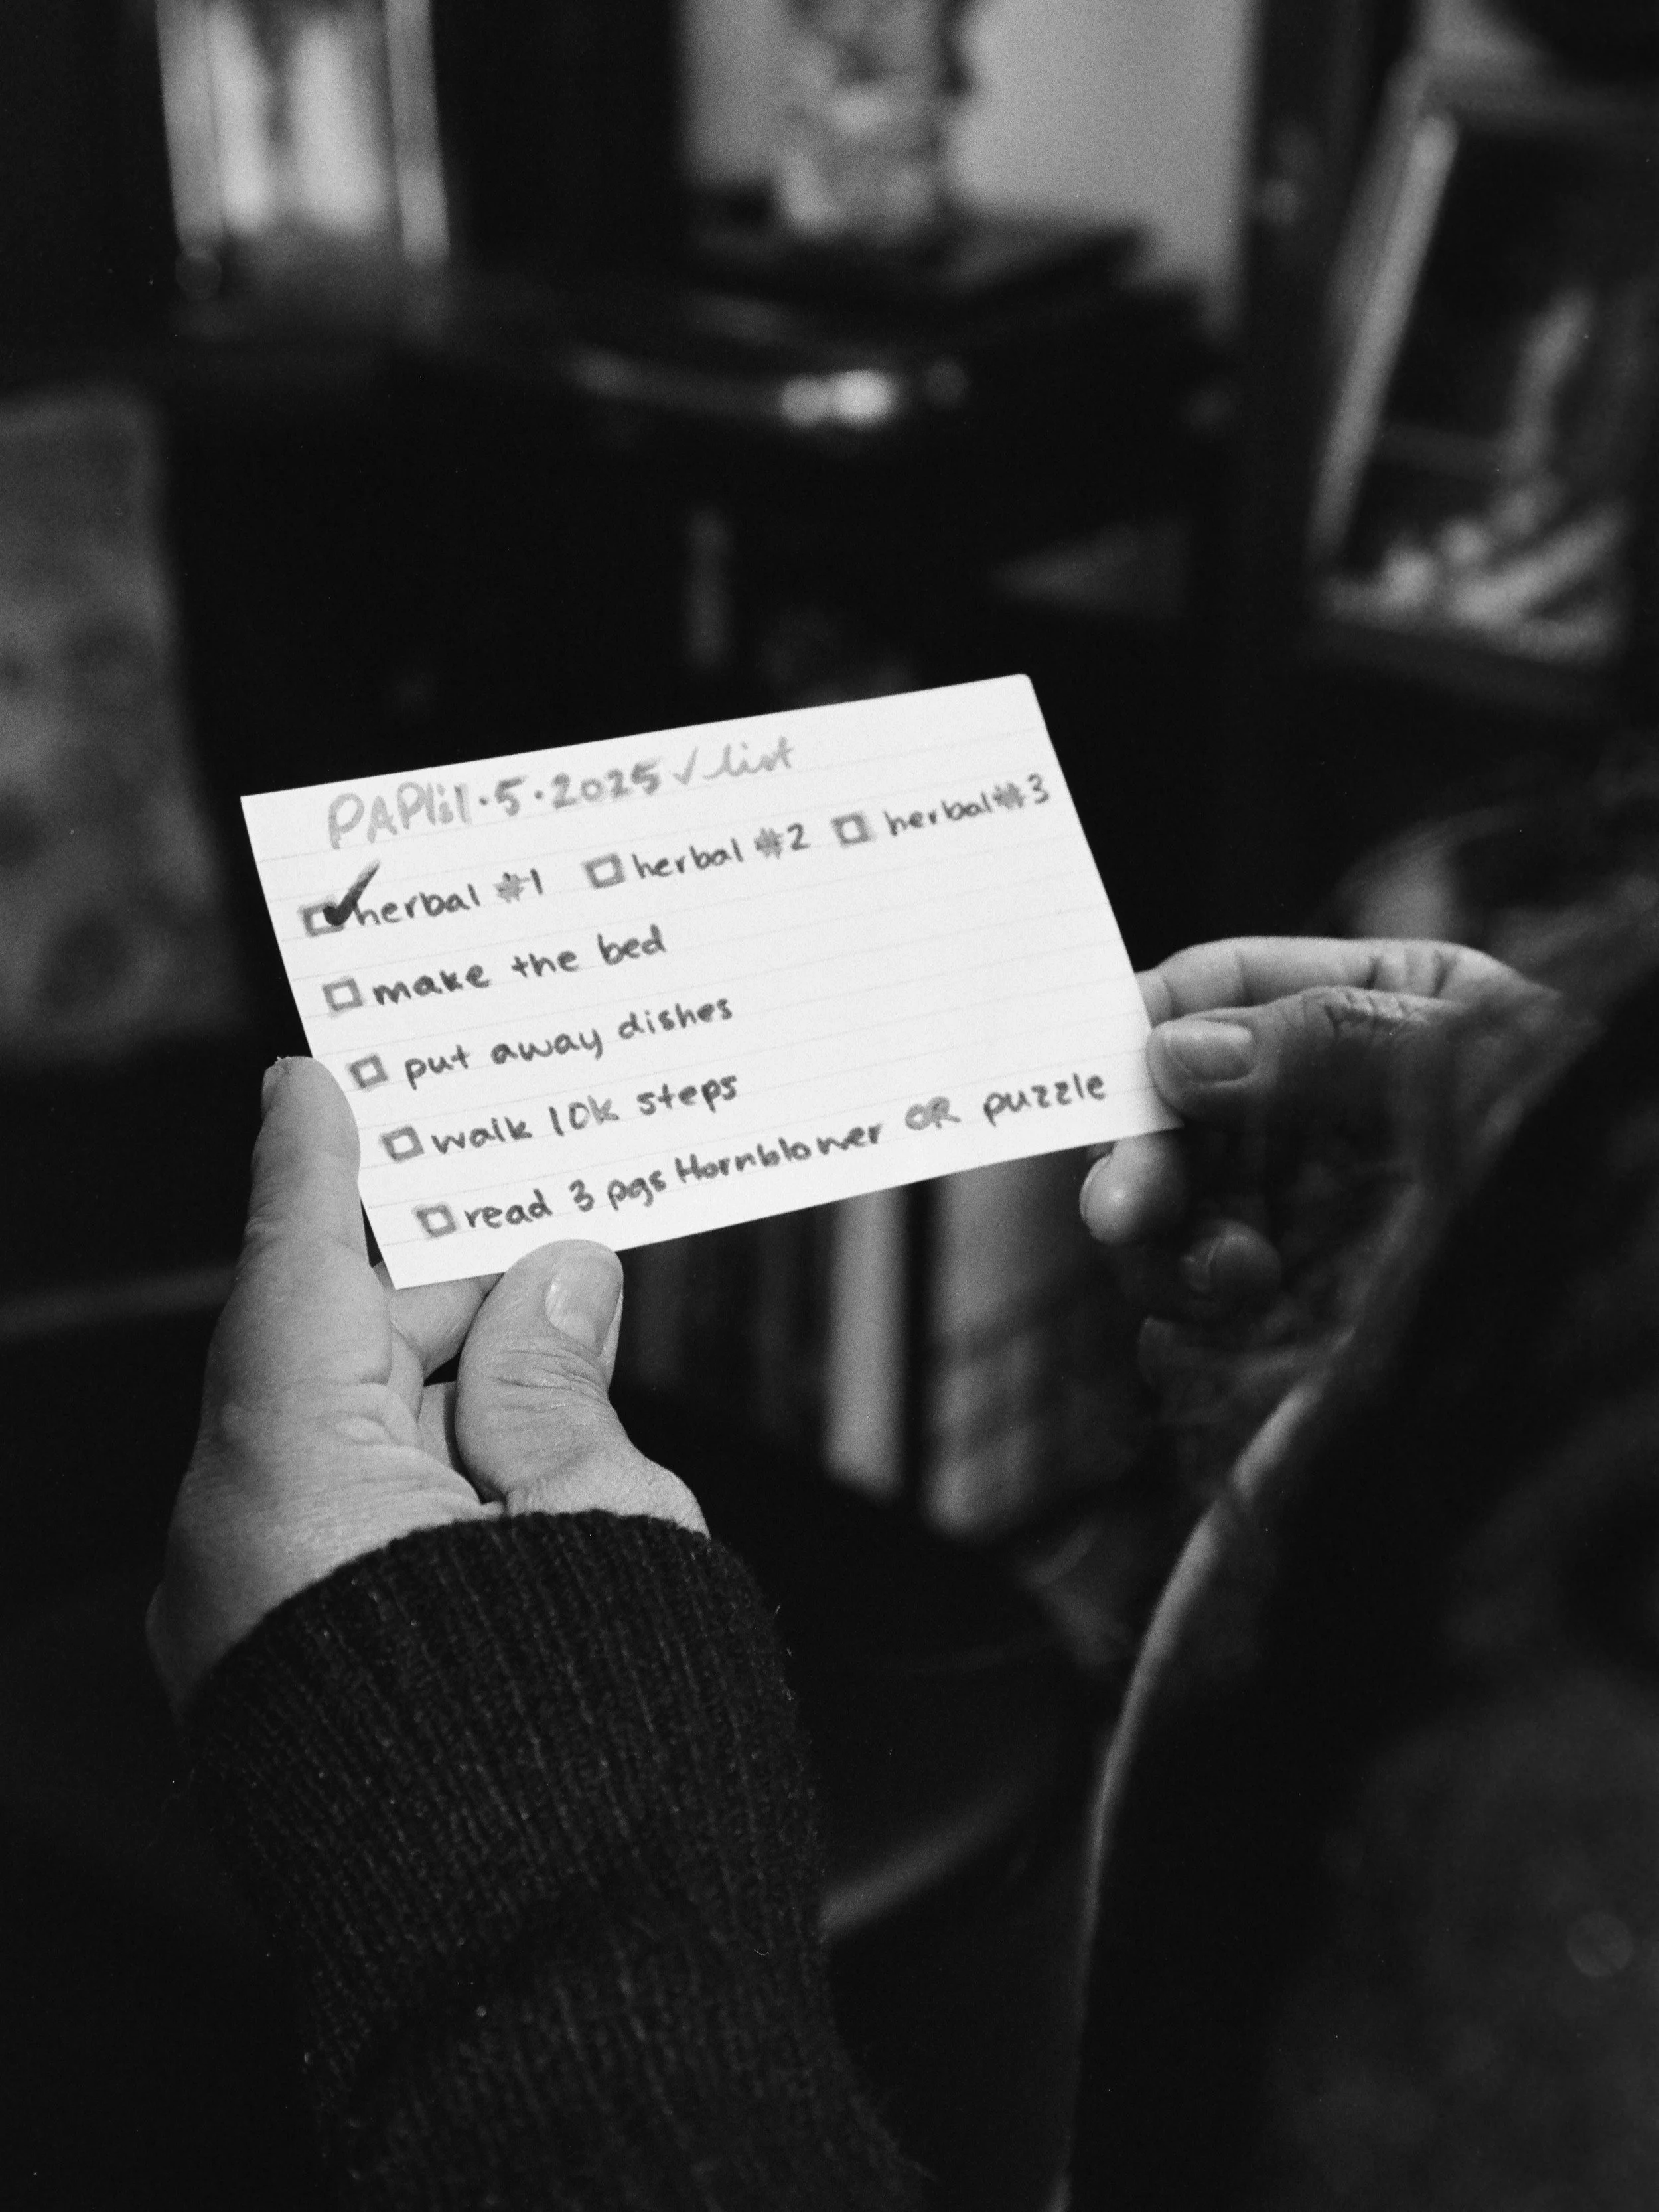 PAPlil·5·2025 ✓list
☑ herbal #1 ☐ herbal #2 ☐ herbal #3
☐ make the bed
☐ put away dishes
☐ walk 10k steps
☐ read 3 pgs Hornblower OR puzzle